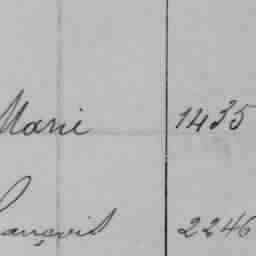 Marie 1435
François 2246